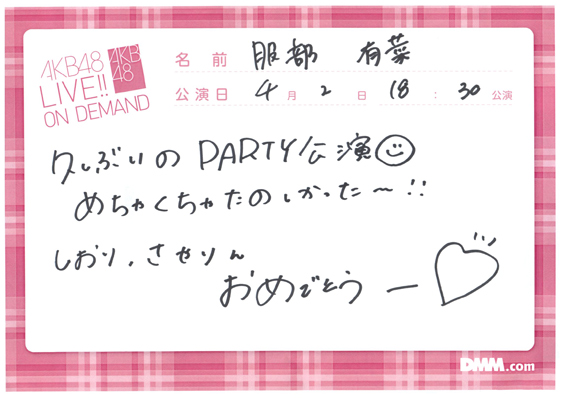 AKB48
LIVE!!
ON DEMAND
AKB
48
名前 服部 有菜
公演日 4月2日 18:30公演
久しぶりのPARTY公演
めちゃくちゃたのしかった〜!!
しおり、さやりん
おめでとうー
DMM.com